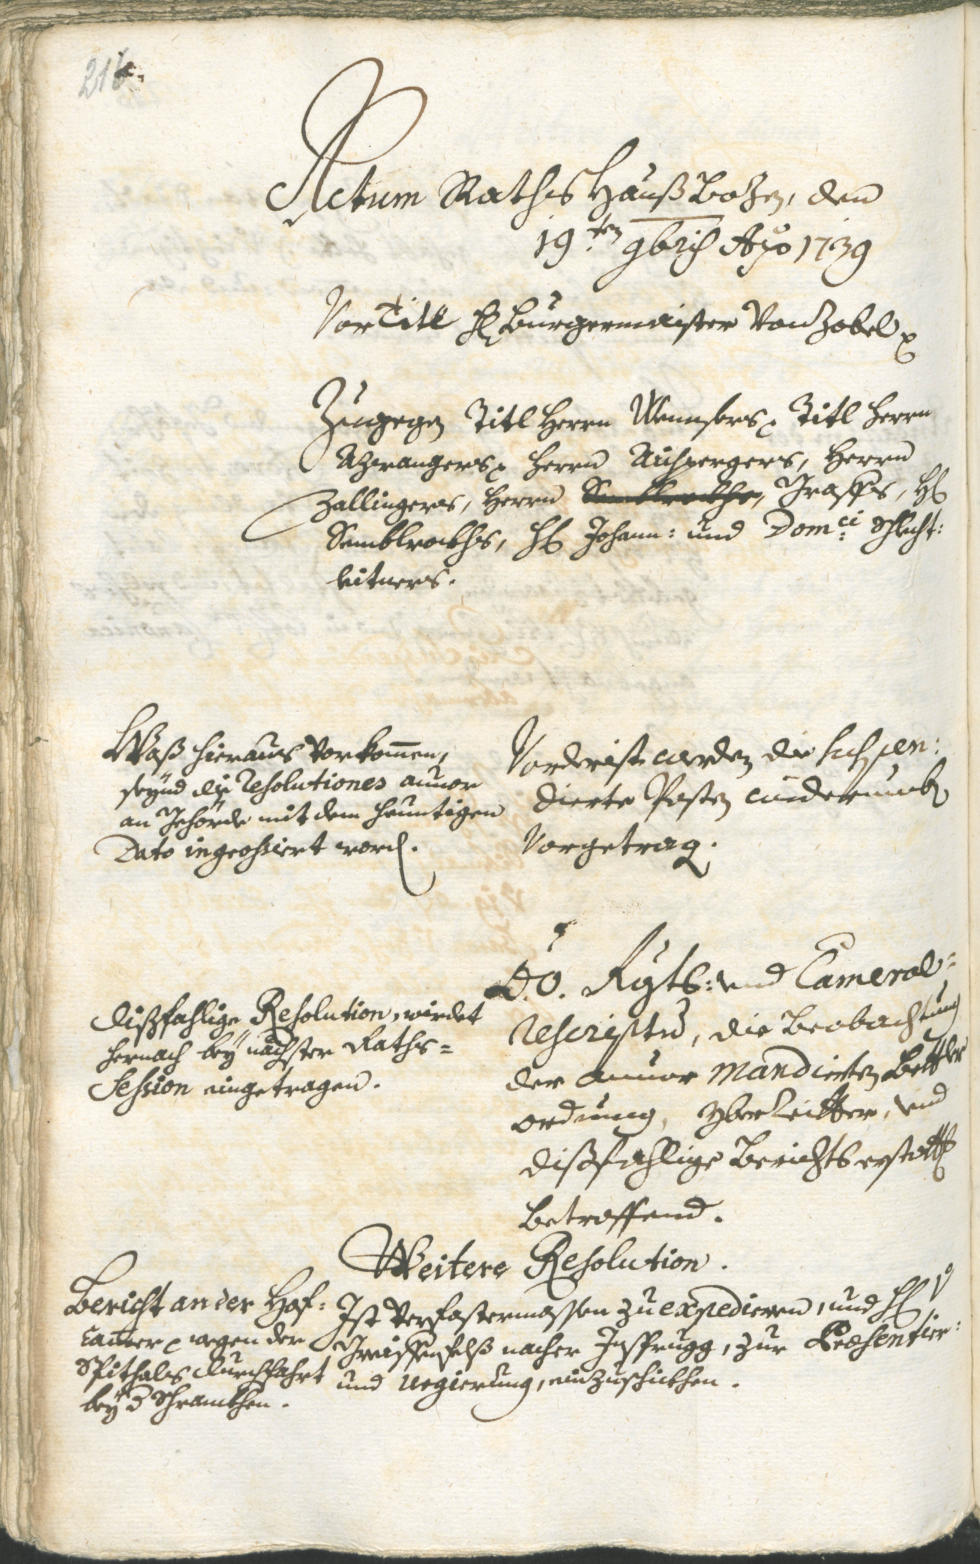 216.
Actum Raths Hauß Bozen, den
19ten 9bris Ao 1739
Vor Titl H Burgermaister Von Zobel
Zugegen Titl Herrn Titl Herrn
Herrn Herrn
Zallingers, Herrn H
Semblrockhs, H Johann: und Domci Schlecht:
leitners.
Waß hieraus Vorkomen,
seynd die Resolutiones anvor
an Behörde mit dem heuntigen
Dato ingrossiert word.
Vorderist werden die suspen:
dierte Posten widerumb
Vorgetrag.
dißfahlige Resolution, wirdet
hernach bey nächster Raths=
Session eingetragen.
O:Ö. Rgts: und Cameral=
rescriptu, die Beobachtung
der anvor mandierten Bettler
ordnung, yberleitter, und
dißfahlige Berichts erstatt
betreffend.
Weitere Resolution.
Bericht an der Hof:
Camer wegen der
Spithals durchfahrt
bey d Schrankhen.
Ist Verfastermassen zu expedieren, und H V
nacher Insprugg, zur Præsentier:
und Regierung, einzuschickhen.